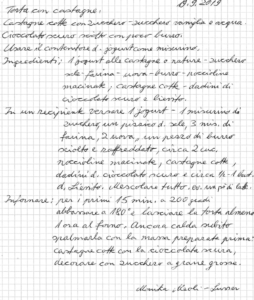 19.9.2019
Torta con castagne:
Castagne cotte con zucchero - zucchero vaniglia e acqua.
Cioccolato scuro sciolto con poco burro.
Usare il contenitore d. jogurt come misurino.
Ingredienti: 1 jogurt alle castagne o nature - zucchero
sale - farina - uova - burro - noccioline
macinate, castagne cotte - dadini di
cioccolato scuro e lievito.
In un recipiente versare 1 jogurt - 1 misurino di
zucchero, un pizzico d. sale, 3 mis. di
farina, 2 uova, un pezzo di burro
sciolto e raffreddato, circa 2 cuc.
noccioline macinate, castagne cotte,
dadini d. cioccolato scuro e circa 1/2 - 1 bust.
d. lievito. Mescolare tutto, ev. un po' di latte.
Infornare: per i primi 15 min. a 200 gradi
abbassare a 180° e lasciare la torta almeno
1 ora al forno. Ancora calda subito
spalmarla con la massa preparata prima:
castagne cotte con la cioccolata scura,
decorare con zucchero a grane grosse.